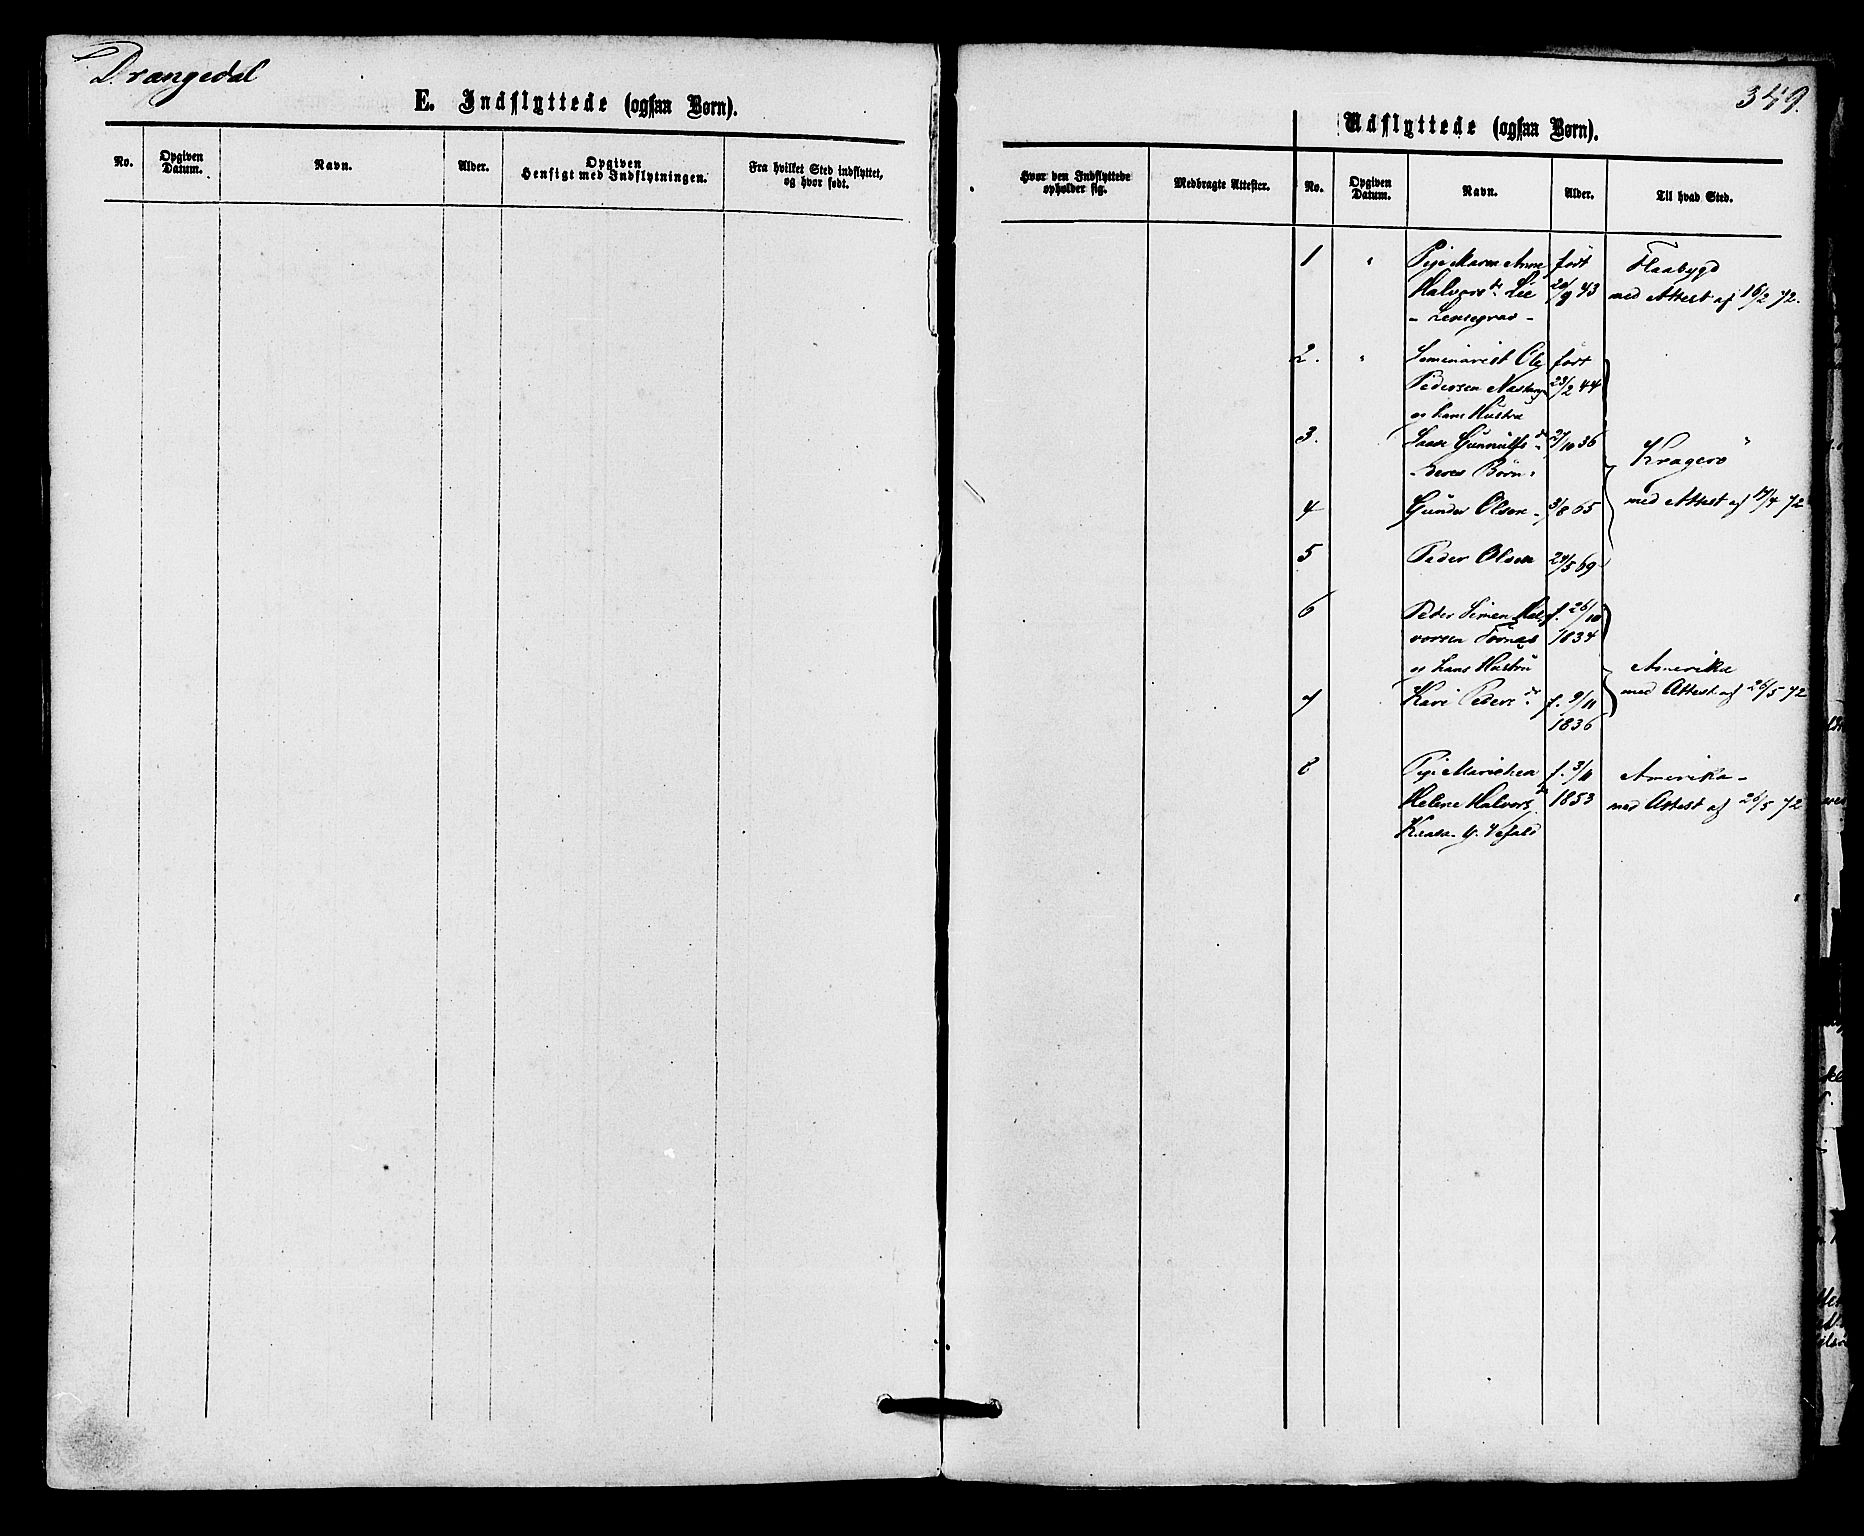 Drangedal
E. Indflyttede (ogsaa Børn).
No.
Opgiven Datum.
Navn.
Alder.
Opgiven Hensigt med Indflytningen.
Fra hvilket Sted indflyttet, og hvor født.
349.
Udflyttede (ogsaa Børn).
Hvor den Indflyttede opholder sig.
Medbragte Attester.
No.
Opgiven Datum.
Navn.
Alder.
Til hvad Sted.
1 " Pige Maren Anne født Flaabygd
Halvorsdr. Lie 20/9 43 med Attest af 16/2 72.
2. " Seminarist Ole født
Pedersen 23/2 44
og hans Hustru
3. Gunnulfsdr. 27/10 36 Kragerö
deres Börn
4 Gunder Olsen 3/8 65 med Attest af 17/4 72
5 Peder Olsen 24/5 69
6 Peder Simen Hal- f. 26/10
vorsen 1834
og hans Hustru Amerika
7 Kari Pedersdr. f. 9/11 med Attest af 26/5 72
1836
8 Pige f. 3/11 Amerika -
Helene Halvorsdr. 1853 med Attest af 26/5 72